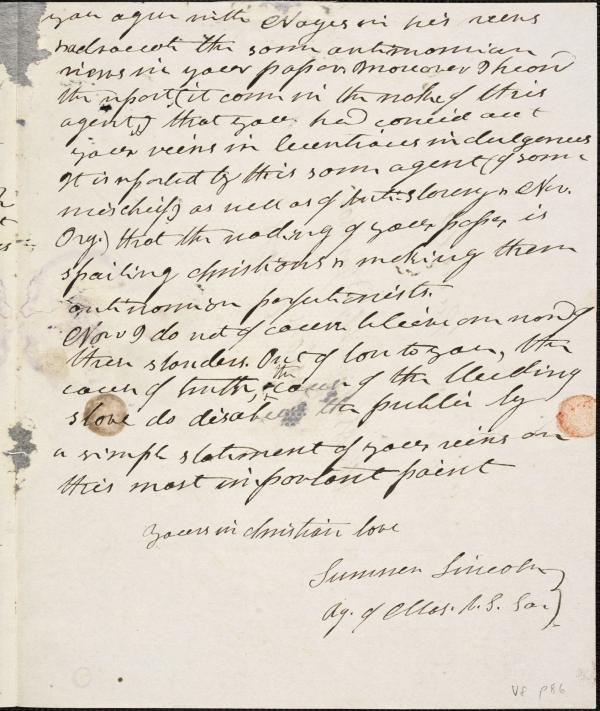 you agree with Noyes in his views
& advocate the same antinomian
views in your paper. Moreover I hear
the report, (it comes in the wake of this
agent,) that you had carried out
your views in licentious indulgences
It is reported by this same agent (of some
mischief) as well as of Anti-slavery & New.
Org.) that the reading of your paper is
spoiling christians & making them
antinomian perfectionists.
Now I do not of course believe one word of
these slanders. Out of love to you, the
cause of truth, & the cause of the bleeding
slave do disabuse the public by
a simple statement of your views on
this most important point
Yours in christian love
Sumner Lincoln
Ag. of Mas. A. S. So.
V8 p86